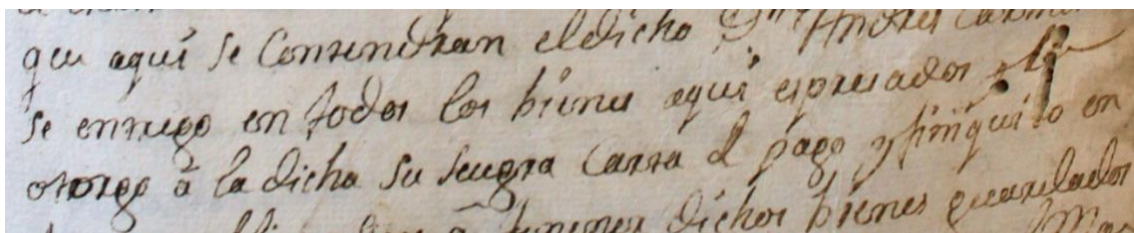 que aqui se Contendran el dicho Dn Andres
se entrego en todos los bienes aqui espresados y le
otorgo â la dicha su suegra Carta d pago y finiquito en
â tener dichos bienes guardados